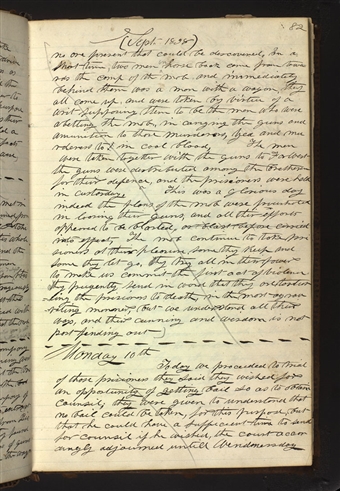 82
(Sept. 1838)
no one present that could be discovered, In a
short time, two men those back come from towa
rds the camp of the mob. and immediately
behind them was a man with a wagon, they
all come up. and were taken by virtue of a
writ supposing them to be the men who were
abetting the mob, in carrying the guns and
amunition to those murderers, and mur
derous in cool blood, The men
were taken together with the guns to Far West
the guns were distributed among the brethren
for their defence, and the prisoners were held
in custody This was a glorious day
indeed the plans of the mob were frustrated
in loosing their guns, and all their efforts
appeared to be blasted, or blast before carried
into effect. The mob continue to take pri
soners at their pleasure, some they keep and
some they let go, they try all in their power
to make us commit the first act of violence
they frequently send in word that they are tortur
ing the prisoners to death, in the most aggrav
ating manner, but we understand all their
ways, and their cunning and wisdom is not
past finding out
Monday 10th
Today we proceeded to trial
of those prisoners they said they wished for
an oppertunity of getting bail so as to obtain
counsel, they were given to understand that
no bail could be taken, for this purpose, but
that he could have a sufficient time to send
for counsel if he wished, the court accor
dingly adjourned untill Wendnesday